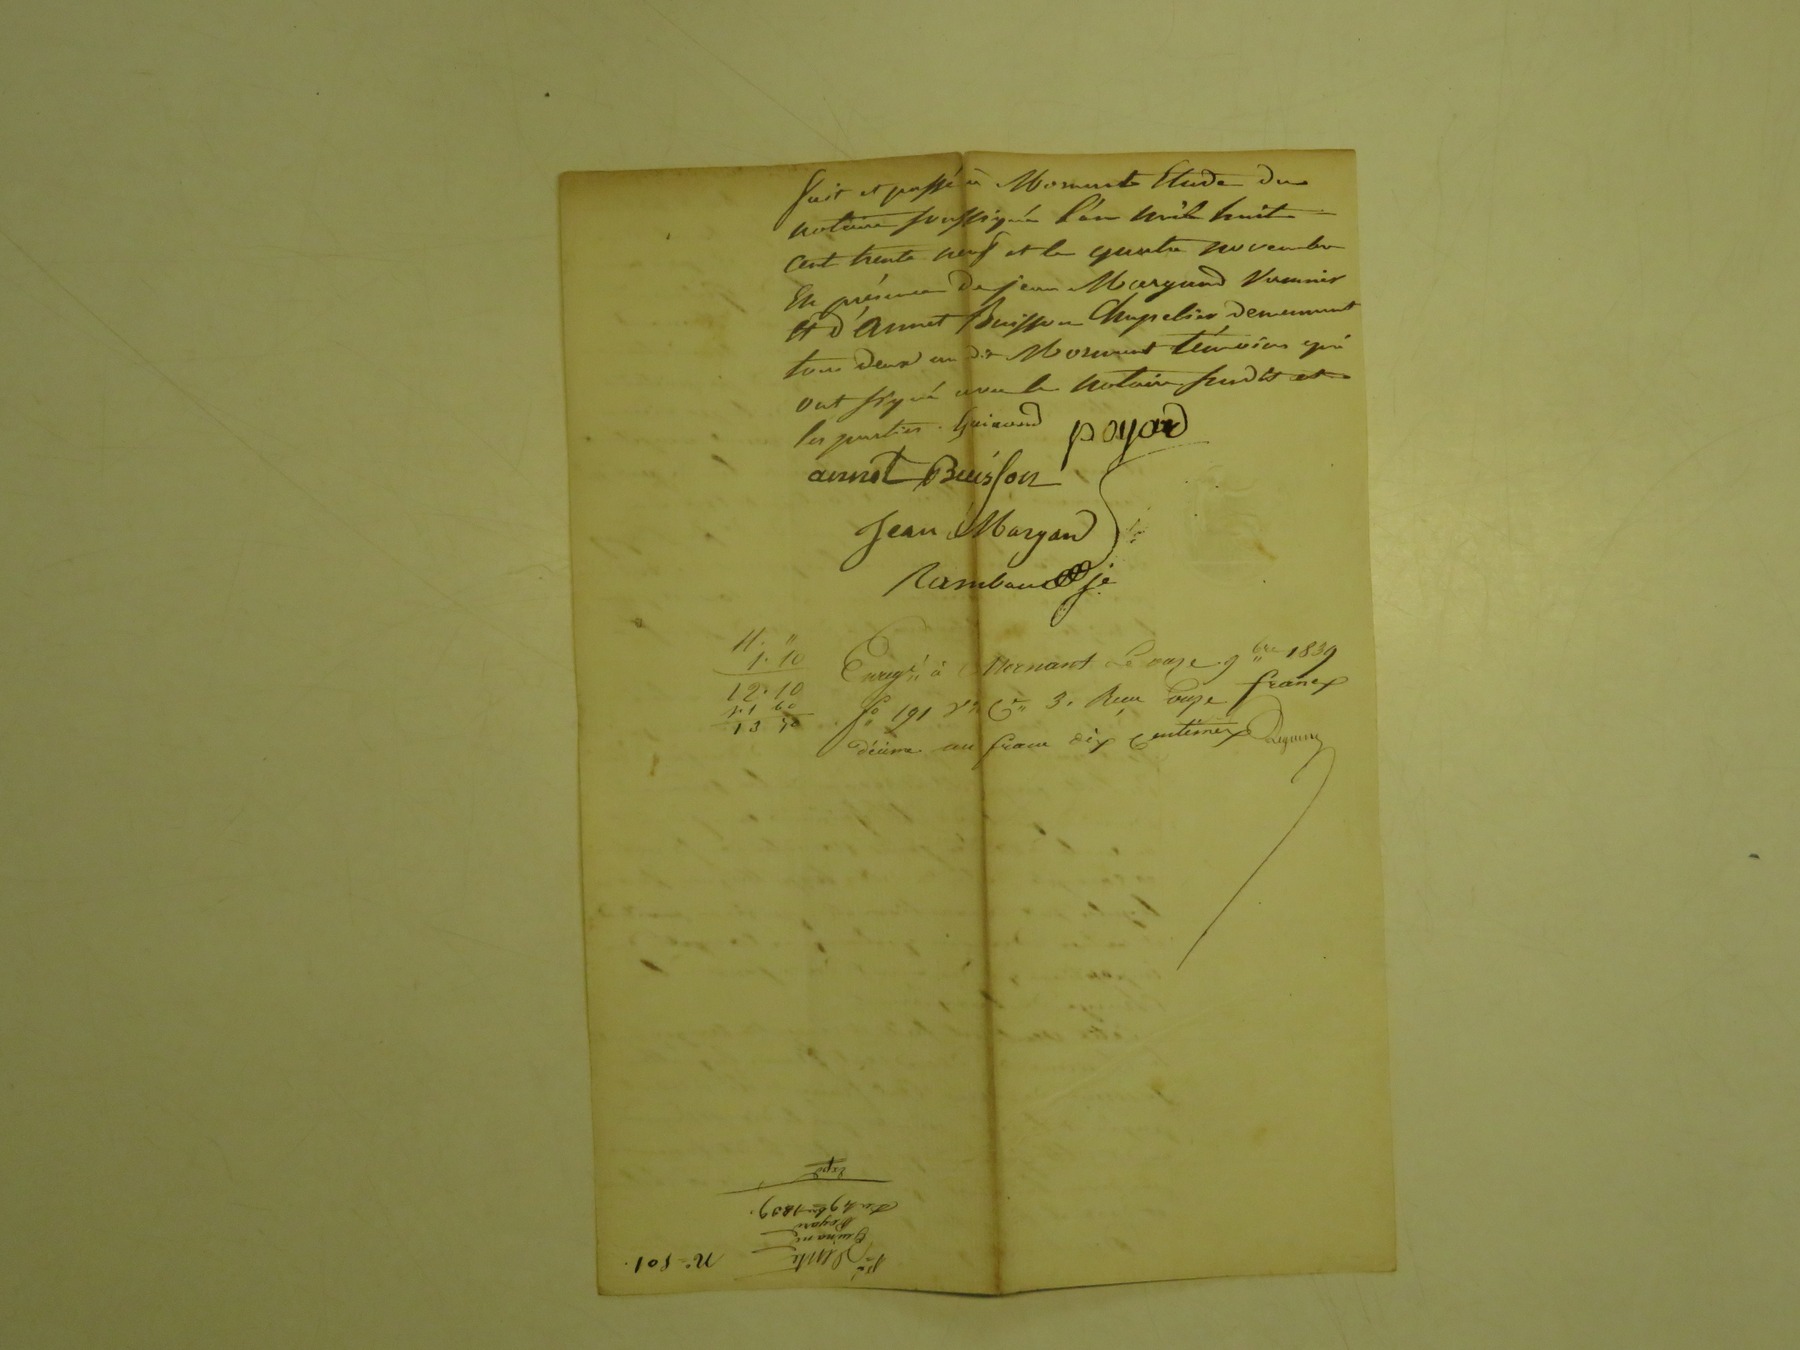 fait et passé à Mornant Etude du
notaire soussigné l'an mil huit
cent trente neuf et le quatre novembre
En présence de jean Margand Vannier
Et d'Annet Buisson Chapelier demeurant
tous deux au dit Mornant témoins qui
ont signé avec le notaire susdit et
les parties. Guinand payard
annet Buisson
Jean Margand
Rambaud je
11. "
1. 10
12. 10
13
Enregé à Mornant Le onze 9bre 1839
fo 191 Vo Ce 3. Reçu onze francs
décime un franc dix centimes
Expé
Du 4 9bre 1839.
Payard
Guinand
Vente
No 501.